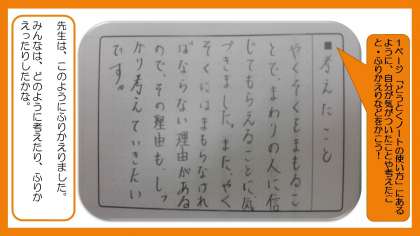 1ページ「どうとくノートの使い方」にある
ように、自分が気がついたことや考えたこ
と・ふりかえりなどをかこう！
■考えたこと
やくそくをまもるこ
とで、まわりの人に信
じてもらえることに気
づきました。また、やく
そくにはまもらなけれ
ばならない理由がある
ので、その理由も、しっ
かり考えていきたい
です。
先生は、このようにふりかえりました。
みんなは、どのように考えたり、ふりか
えったりしたかな。